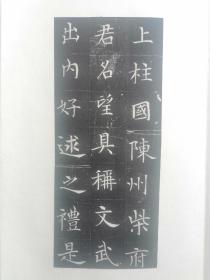 上柱國陳州柴府
君名望具稱文武
出內好逑之禮是